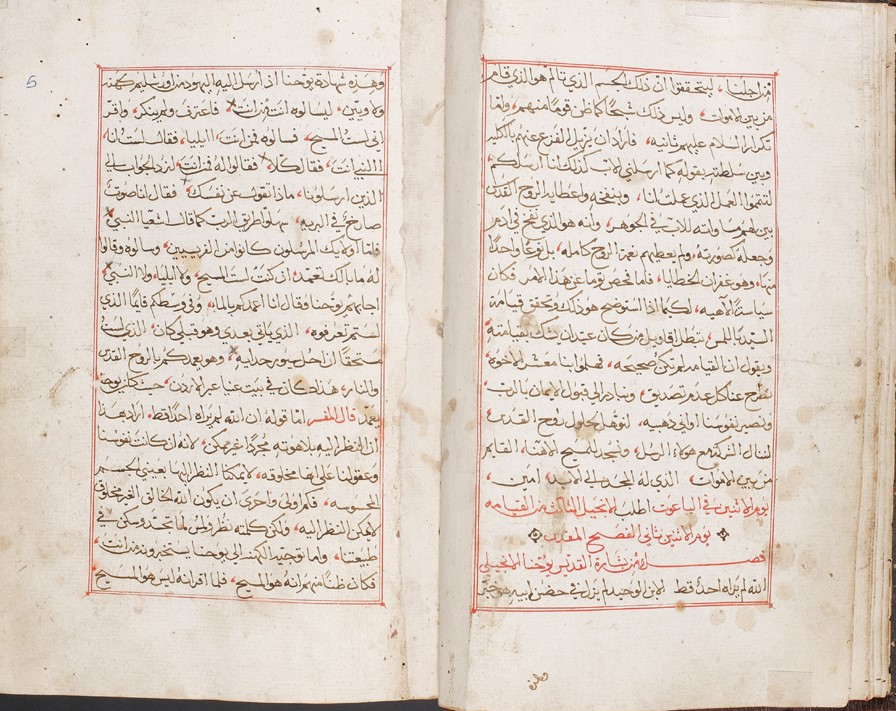 من اجلنا، ليتحققوا ان ذلك الجسم الذي تالم هو الذي قام
من بين الاموات، وليس ذلك شبحًا كما ظن قومًا منهم، واما
تكرار السلام عليهم ثانيه، فاراد ان يزيل الفزع عنهم بالكليه
وبين سلطته بقوله كما ارسلني الاب كذلك انا ارسلكم،
لتتمموا العمل الذي عملت انا، وبنفخه واعطايه الروح القدس
بين بانه مساو لله الاب في الجوهر، وانه هو الذي نفخ في ادم
وجعله كصورته، ولم يعطهم نعمة الروح كامله، بل نوعًا واحدًا
منها، وهو غفران الخطايا، فاما فحص توما عن هذا الامر فكان
سياسة الاهيه، لكيما اذا استوضح هو ذلك وتحقق قيامة
السيد باللمس، تبطل اقاويل من كان عتيدان يشك بقيامته
ويقول ان القيامه لم تكن صحيحه، فهلموا بنا معشر الاخوه
نطرح عنا كل عدم تصديق، ونبادر الى قبول الايمان بالرب،
ونصير نفوسنا اواني ذهبيه، لنوهل لحلول روح القدس،
لننال الشركة مع هولاء الرسل، ونسجد للمسيح الاهنا، القايم
من بين الاموات، الذي له المجد الى الابد امين،
يوم الاثنين في الباعوث اطلب الانجيل الثالث من القيامه
يوم الاثنين ثاني الفصح المقدس
فصل من بشارة القديس يوحنا الانجيلي
الله لم يراه احدًا قط الابن الوحيد لم يزل في حضن ابيه هو خبر
وهذه
وهذه شهادة يوحنا اذ ارسل اليه اليهود من اورشليم كهنه
ولاويين، ليسالوه انت من انت، فاعترف ولم ينكر، واقر
اني لست المسيح، فسالوه فمن انت، ايليا، فقال لست انا،
االنبي انت، فقال كلا، فقالوا له فمن انت، لنرد الجواب الى
الذين ارسلونا، ماذا تقول عن نفسك، فقال انا صوت
صارخ في البريه، سهلوا طريق الرب كما قال اشعيا النبي،
فاما اوليك المرسلون كانوا من الفريسيين، وسالوه وقالوا
له ما بالك تعمد، ان كنت لست المسيح، ولا ايليا، ولا النبي،
اجابهم يوحنا وقال انا اعمدكم بالماء، وفي وسطكم قايمًا الذي
لستم تعرفوه، الذي ياتي بعدي وهو قبلي كان، الذي لست
مستحقًا ان احل سيور حذايه، وهو يعمدكم بالروح القدس
والنار، هذا كان في بيت عنيا عبر الاردن، حيث كان يوحنا
يعمد، قال المفسر، اما قوله ان الله لم يراه احدًا قط، اراد بهذا
ان النظر اليه بلاهوته مجردًا غير ممكن، لانه ان كانت نفوسنا
وعقولنا على انها مخلوقه، لا يمكننا النظر اليها بعيني الجسم
المحسوسه، فكم اولى واحرى ان يكون الله الخالق الغير مخلوق
لا يمكن النظر اليه، ولكن كلمته نظر ولمس لما اتحد وسكن في
طبيعتنا، واما توجيه الكهنه الى يوحنا يستخبروه من انت،
فكان ظنًا منهم انه هو المسيح، فلما اقر انه ليس هو المسيح
5